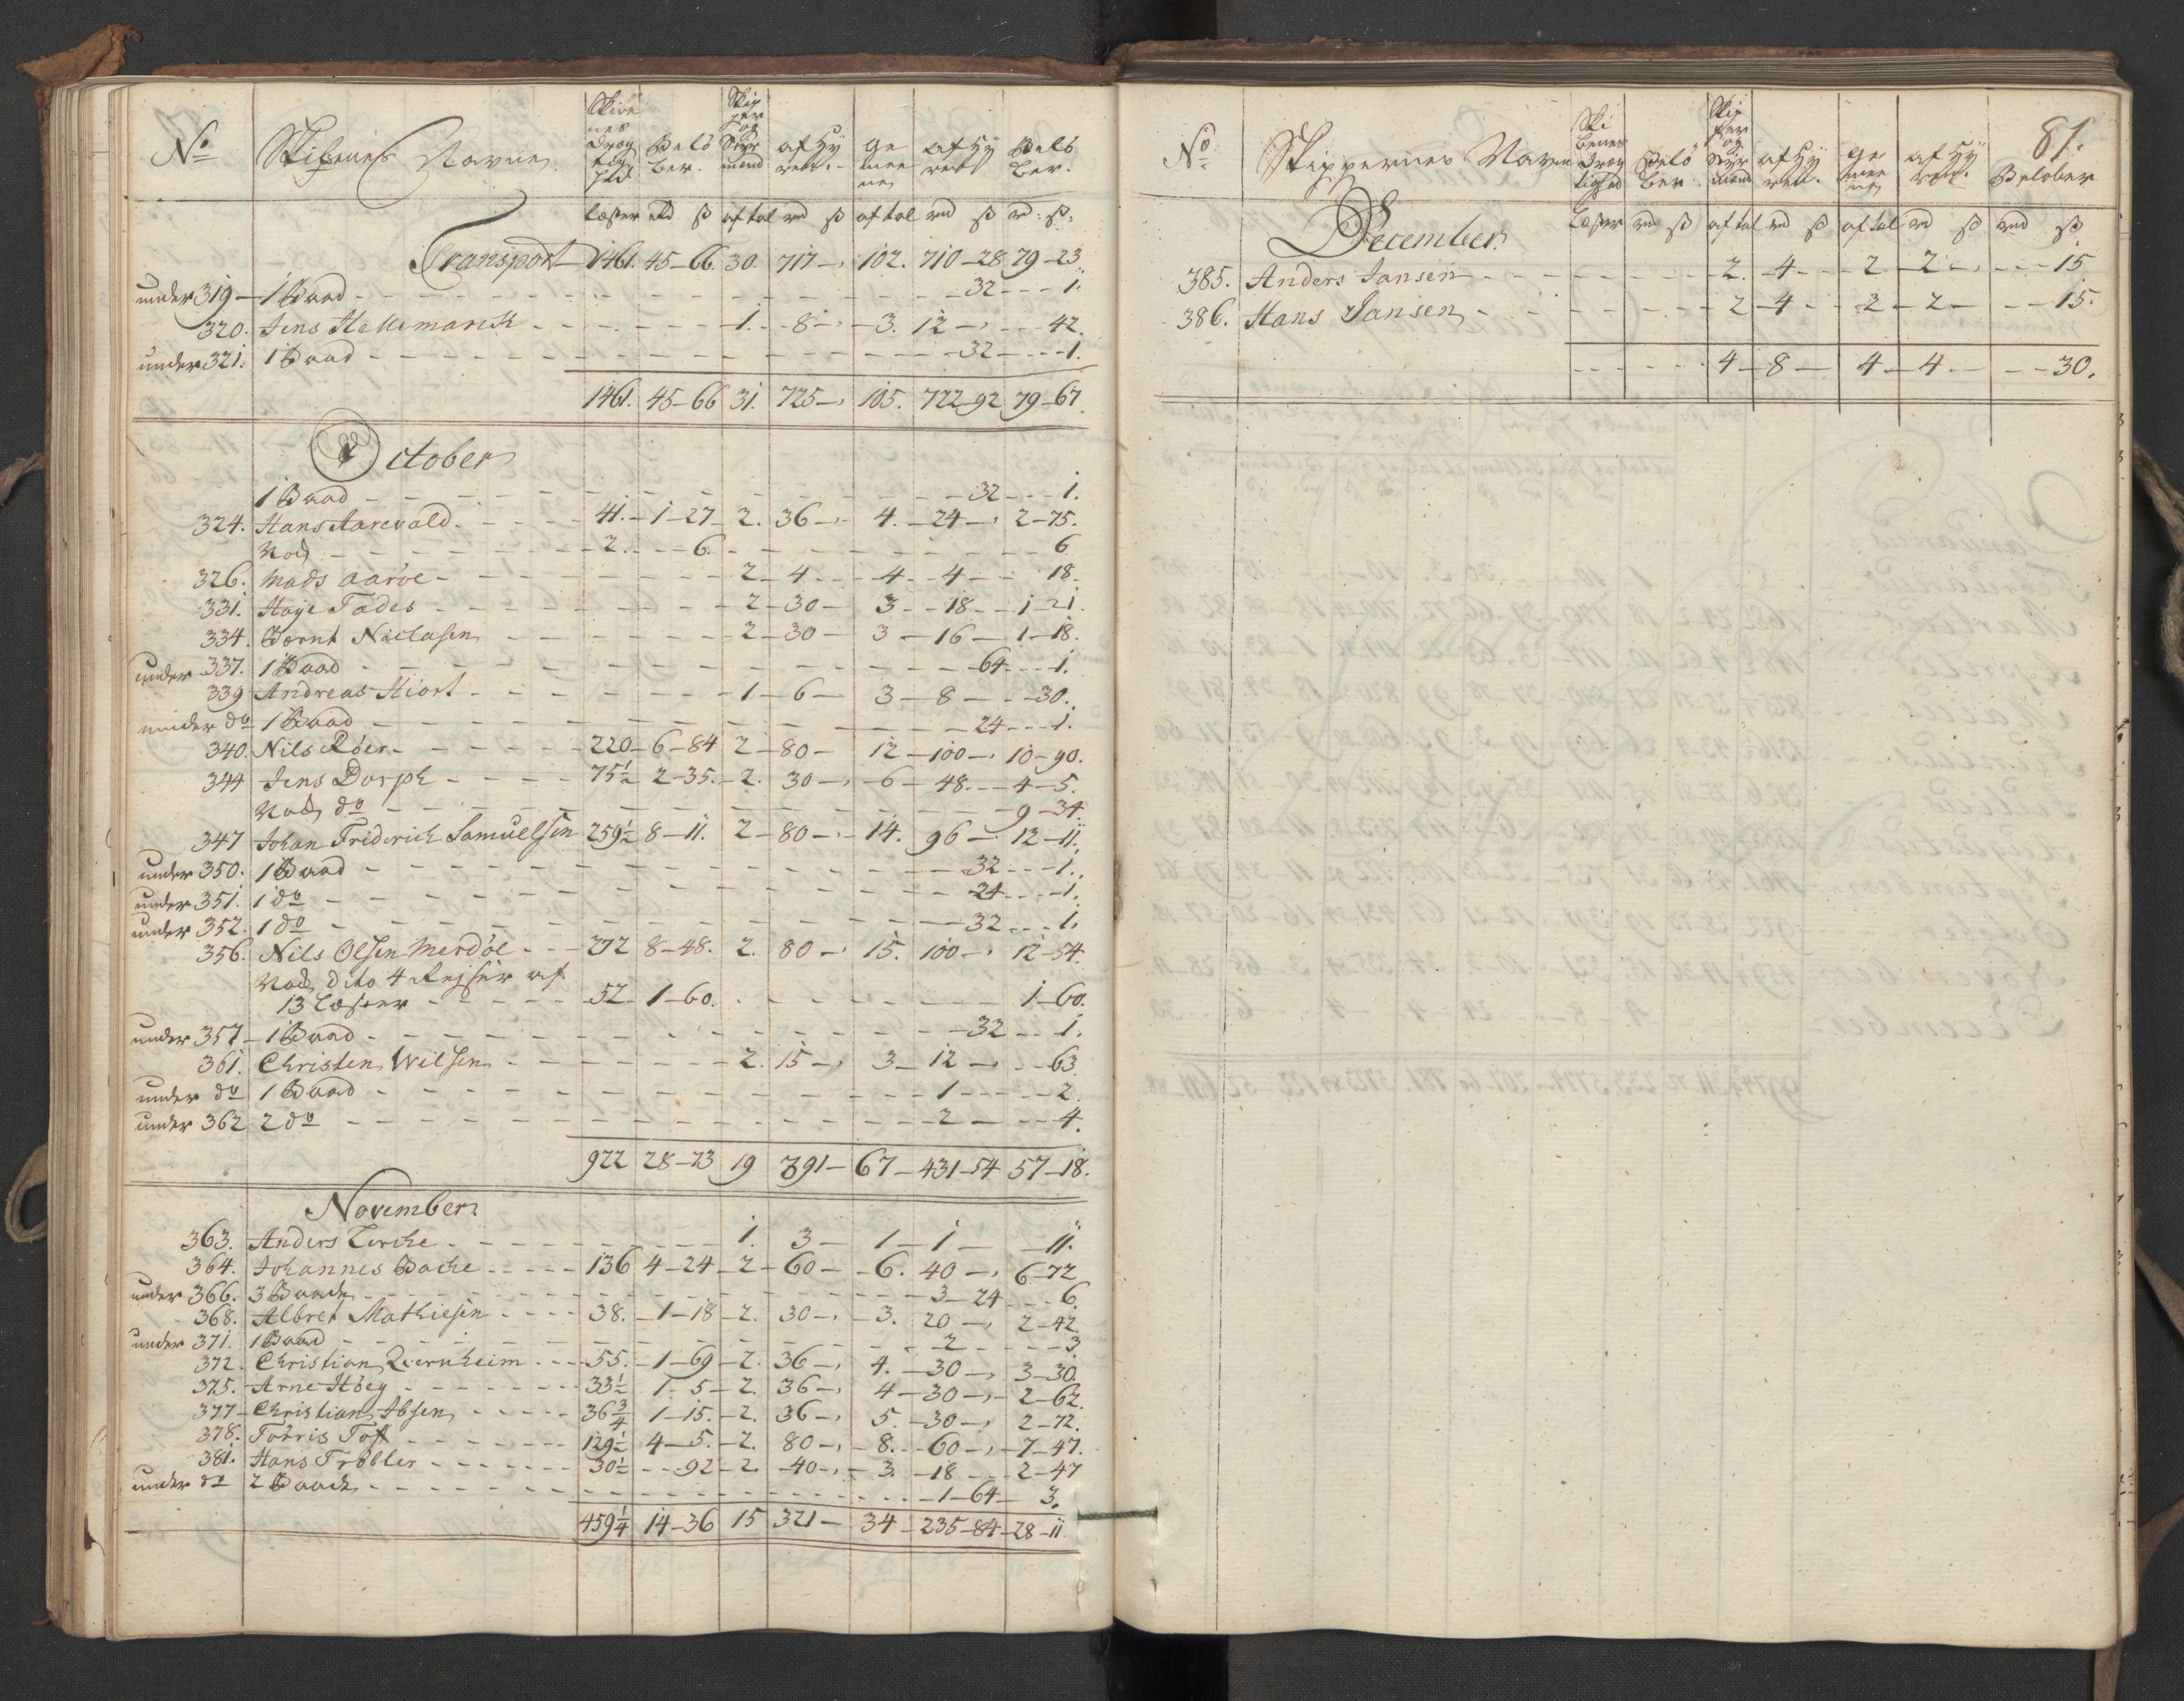 No Skibenes Navne Skibenes Drægtighed Belöber Skipper og Styrmænd af Hyren Gemeene af Hyren Belöber
Læster rd s aftal rd s aftal rd s rd s
Transport 1461. 45-66. 30. 717- 102. 710-28 79-23
under 319 1 Baad 32 1.
320. Jens Hellemarck 1. 8- 3. 12- 42.
under 321. 1 Baad 32 1.
1461. 45-66 31. 725- 105. 722-92 79-67.
October
1 Baad 32 1.
324. Hans Aarevold 41. 1-27 2. 36- 4. 24- 2-75.
Nock 2. 6. 6
326. Mads Aaröe 2 4 4 4 18.
331. Haye Tades 2 30 3 18 1-21.
334. Bernt Niclasen 2 30 3 16 1-18.
under 337. 1 Baad 64 1.
339 Andreas Hiort 1 6 3 8 30.
under do 1 Baad 24 1.
340. Nils Röer 220 6-84 2 80 12 100- 10-90.
344 Jens Dorph 75½ 2-35. 2. 30- 6 48. 4-5.
Nock do 9-34.
347 Johan Friderich Samuelsen 259½ 8-11. 2 80- 14. 96- 12-11.
under 350. 1 Baad 32 1.
under 351. 1 do 24 1.
under 352. 1 do 32 1.
356. Nils Olsen Merdöe 272 8-48. 2. 80- 15. 100- 12-54.
Nock dito 4 Rejser af
13 Læster 52 1-60. 1-60.
under 357 1 Baad 32 1.
361. Christen Wilsen 2. 15- 3 12- 63.
under do 1 Baad 1 2.
under 362 2 do 2 4.
922 28-73 19 391- 67 431-54 57-18.
November
363. Anders Lerche 1. 3 1 1 11.
364. Johannes Bache 136 4-24 2 60 6. 40- 6-72
under 366. 3 Baade 3-24 6.
368. Albret Mathiesen 38. 1-18 2. 30- 3. 20- 2-42.
under 371. 1 Baad 2 3.
372. Christian Qvernheim 55. 1-69 2. 36- 4. 30- 3-30.
375. Arne Höeg 33½ 1-5 2. 36- 4 30- 2-62.
377 Christian Ibsen 36¾ 1-15. 2. 36- 5. 30- 2-72.
378. Törris Toft 129½ 4-5. 2. 80- 8. 60- 7-47.
381. Hans Tröbler 30½ 92 2 40- 3. 18 2-47
under do 2 Baade 1-64 3.
459¼ 14-36 15 321- 34 235-84 28-11
81.
No Skippernes Navne Skibenes Drægtighed Belöber Skipper og Styrmænd af Hyren Gemeene af Hyren Belober
Læster rd s aftal rd s aftal rd s rd s
December
385. Anders Jansen 2. 4 2 2 15
386. Hans Jansen 2 4 2 2 15.
4 8 4 4 30.